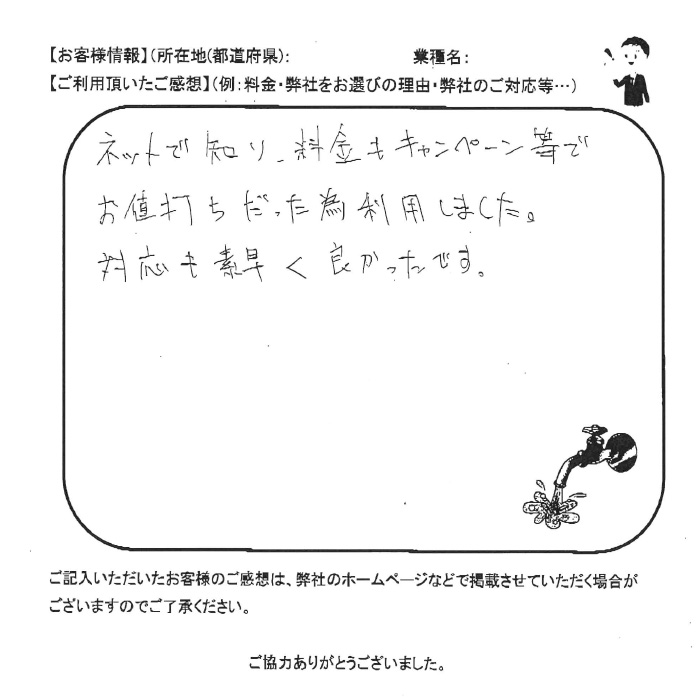 【お客様情報】(所在地(都道府県): 業種名:
【ご利用頂いたご感想】(例:料金・弊社をお選びの理由・弊社のご対応等…)
ネットで知り、料金もキャンペーン等で
お値打ちだった為利用しました。
対応も素早く良かったです。
ご記入いただいたお客様のご感想は、弊社のホームページなどで掲載させていただく場合が
ございますのでご了承ください。
ご協力ありがとうございました。